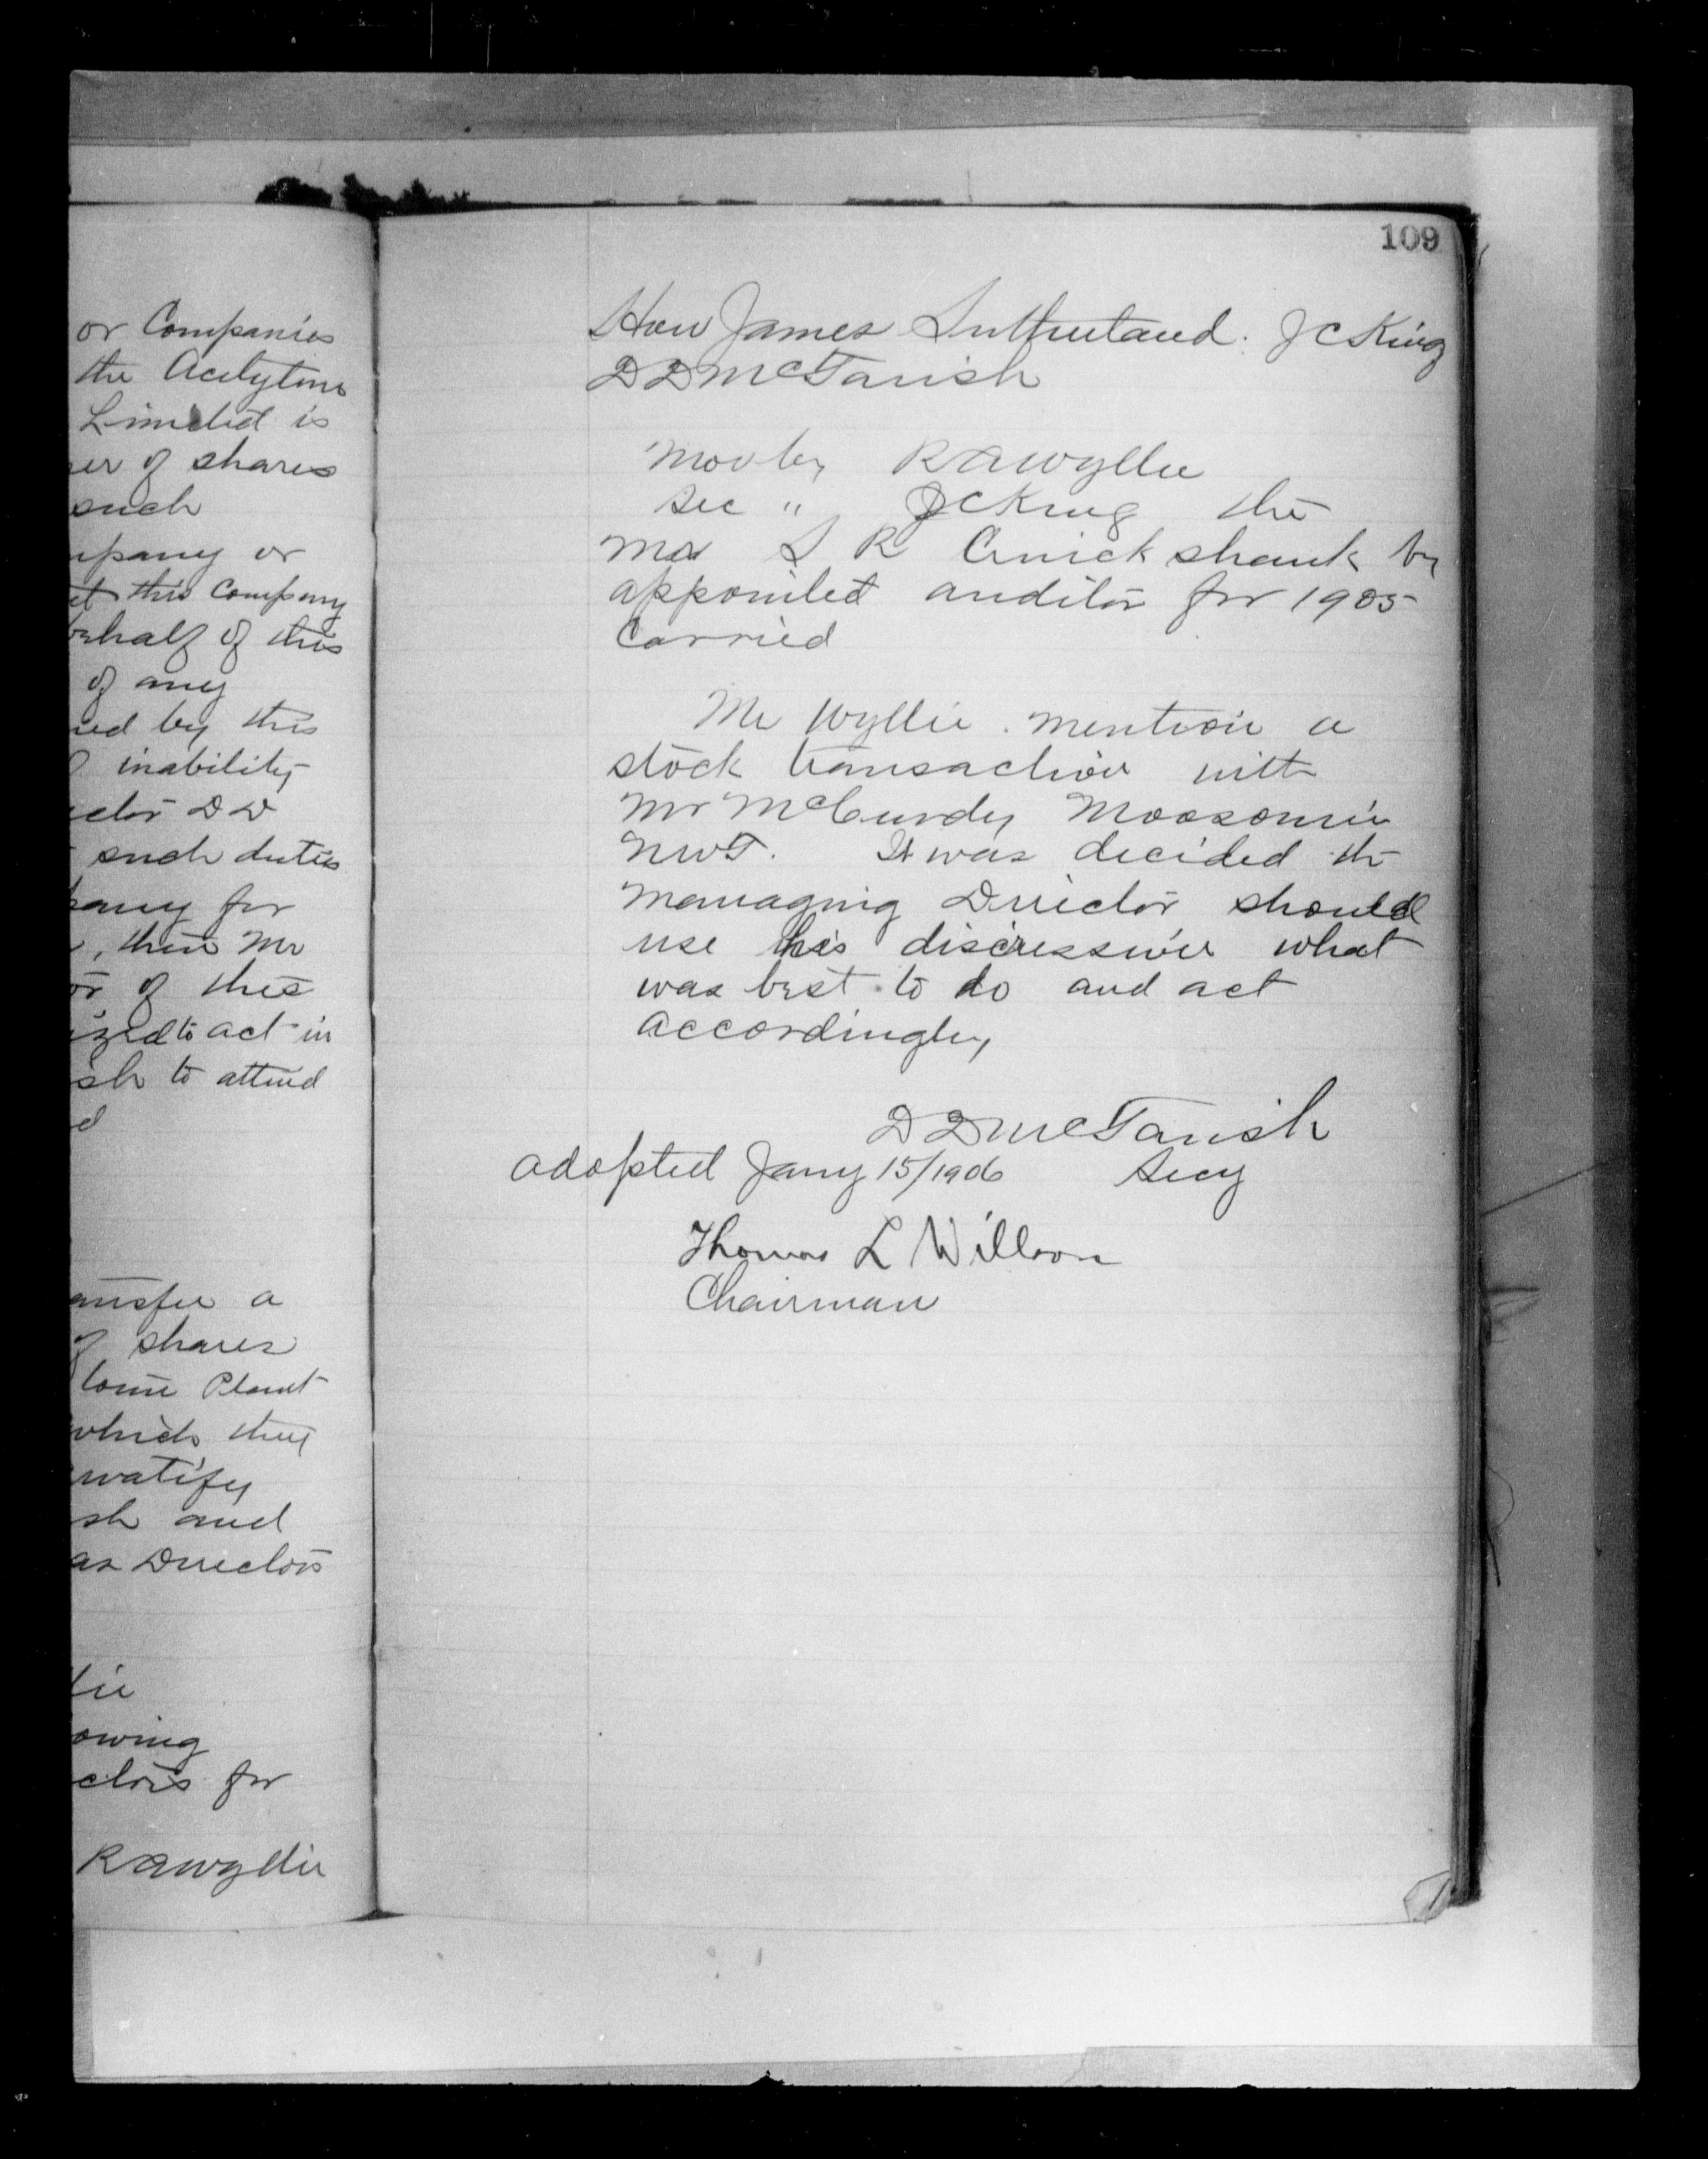 or Companies
the Acetylene
Limited is
er of shares
such
mpany or
et this Company
behalf of this
of any
ned by this
inability
ector D D
such duties
pany for
, then Mr
or of this
ized to act in
ish to attend
d
ansfer a
of shares
Plant
which they
ratify
sh and
as Directors
lie
owing
ctors for
R A Wyllie
109
Hon James Sutherland. J C King
D D McTavish
Mov by R A Wyllie
Sec " J C King the
Mr S R Cruickshank be
appointed auditor for 1905
Carried
Mr Wyllie mention a
stock transaction with
Mr McCurdy Moosomin
NWT. It was decided the
Managing Director should
use his discression what
was best to do and act
accordingly
D D McTavish
adopted Jany 15/1906 Secy
Thomas L Willson
Chairman